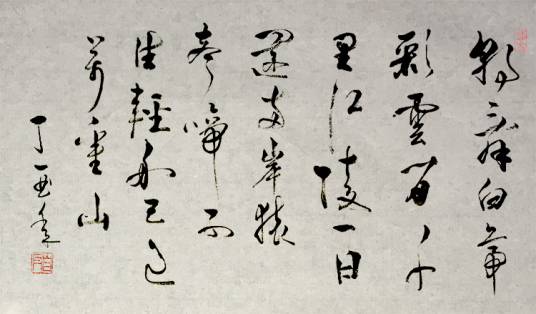 朝辭白帝
彩雲間千
里江陵一日
還兩岸猿
聲啼不
住輕舟已過
萬重山
丁酉